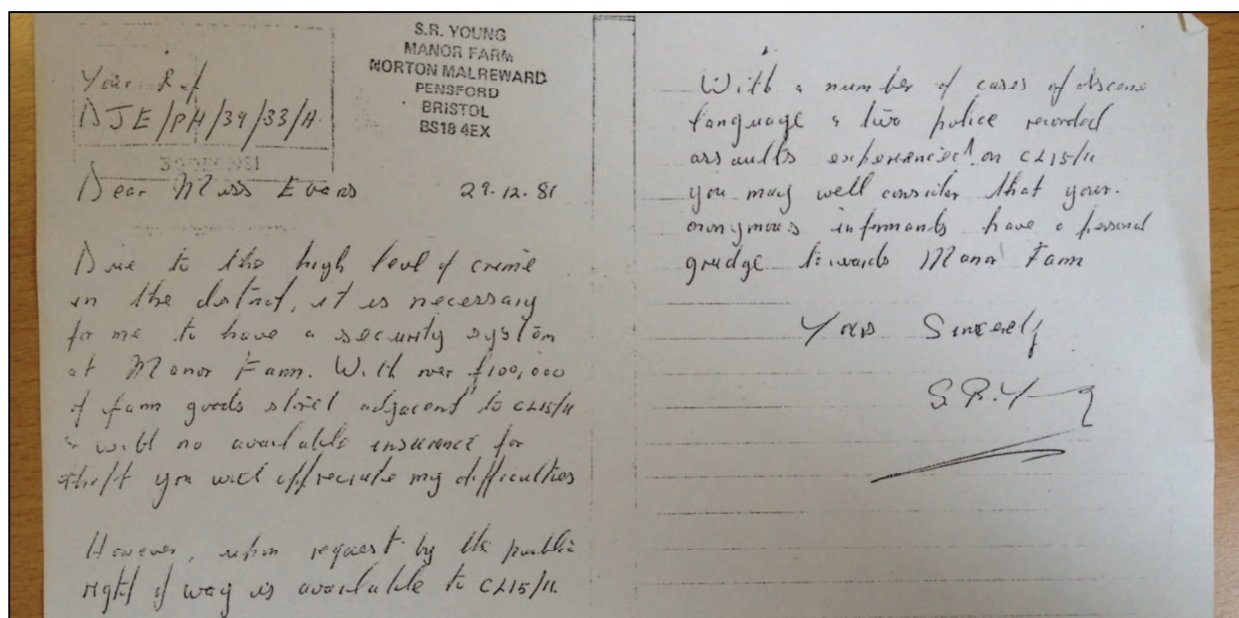 Your Ref
DJE/PH/39/33/A.
30 DEC 1981
S.R. YOUNG
MANOR FARM
NORTON MALREWARD
PENSFORD
BRISTOL
BS18 4EX
Dear Miss Evans 29.12.81
Due to the high level of crime
in the district, it is necessary
for me to have a security system
at Manor Farm. With over £100,000
of farm goods stored adjacent to CL15/11
& with no available insurance for
theft you will appreciate my difficulties
However, upon request by the public
right of way is available to CL15/11.
With a number of cases of obscene
language & two police recorded
assaults experienced on CL15/11
you may well consider that your
anonymous informants have a personal
grudge towards Manor Farm
Yours Sincerely
S.R. Young